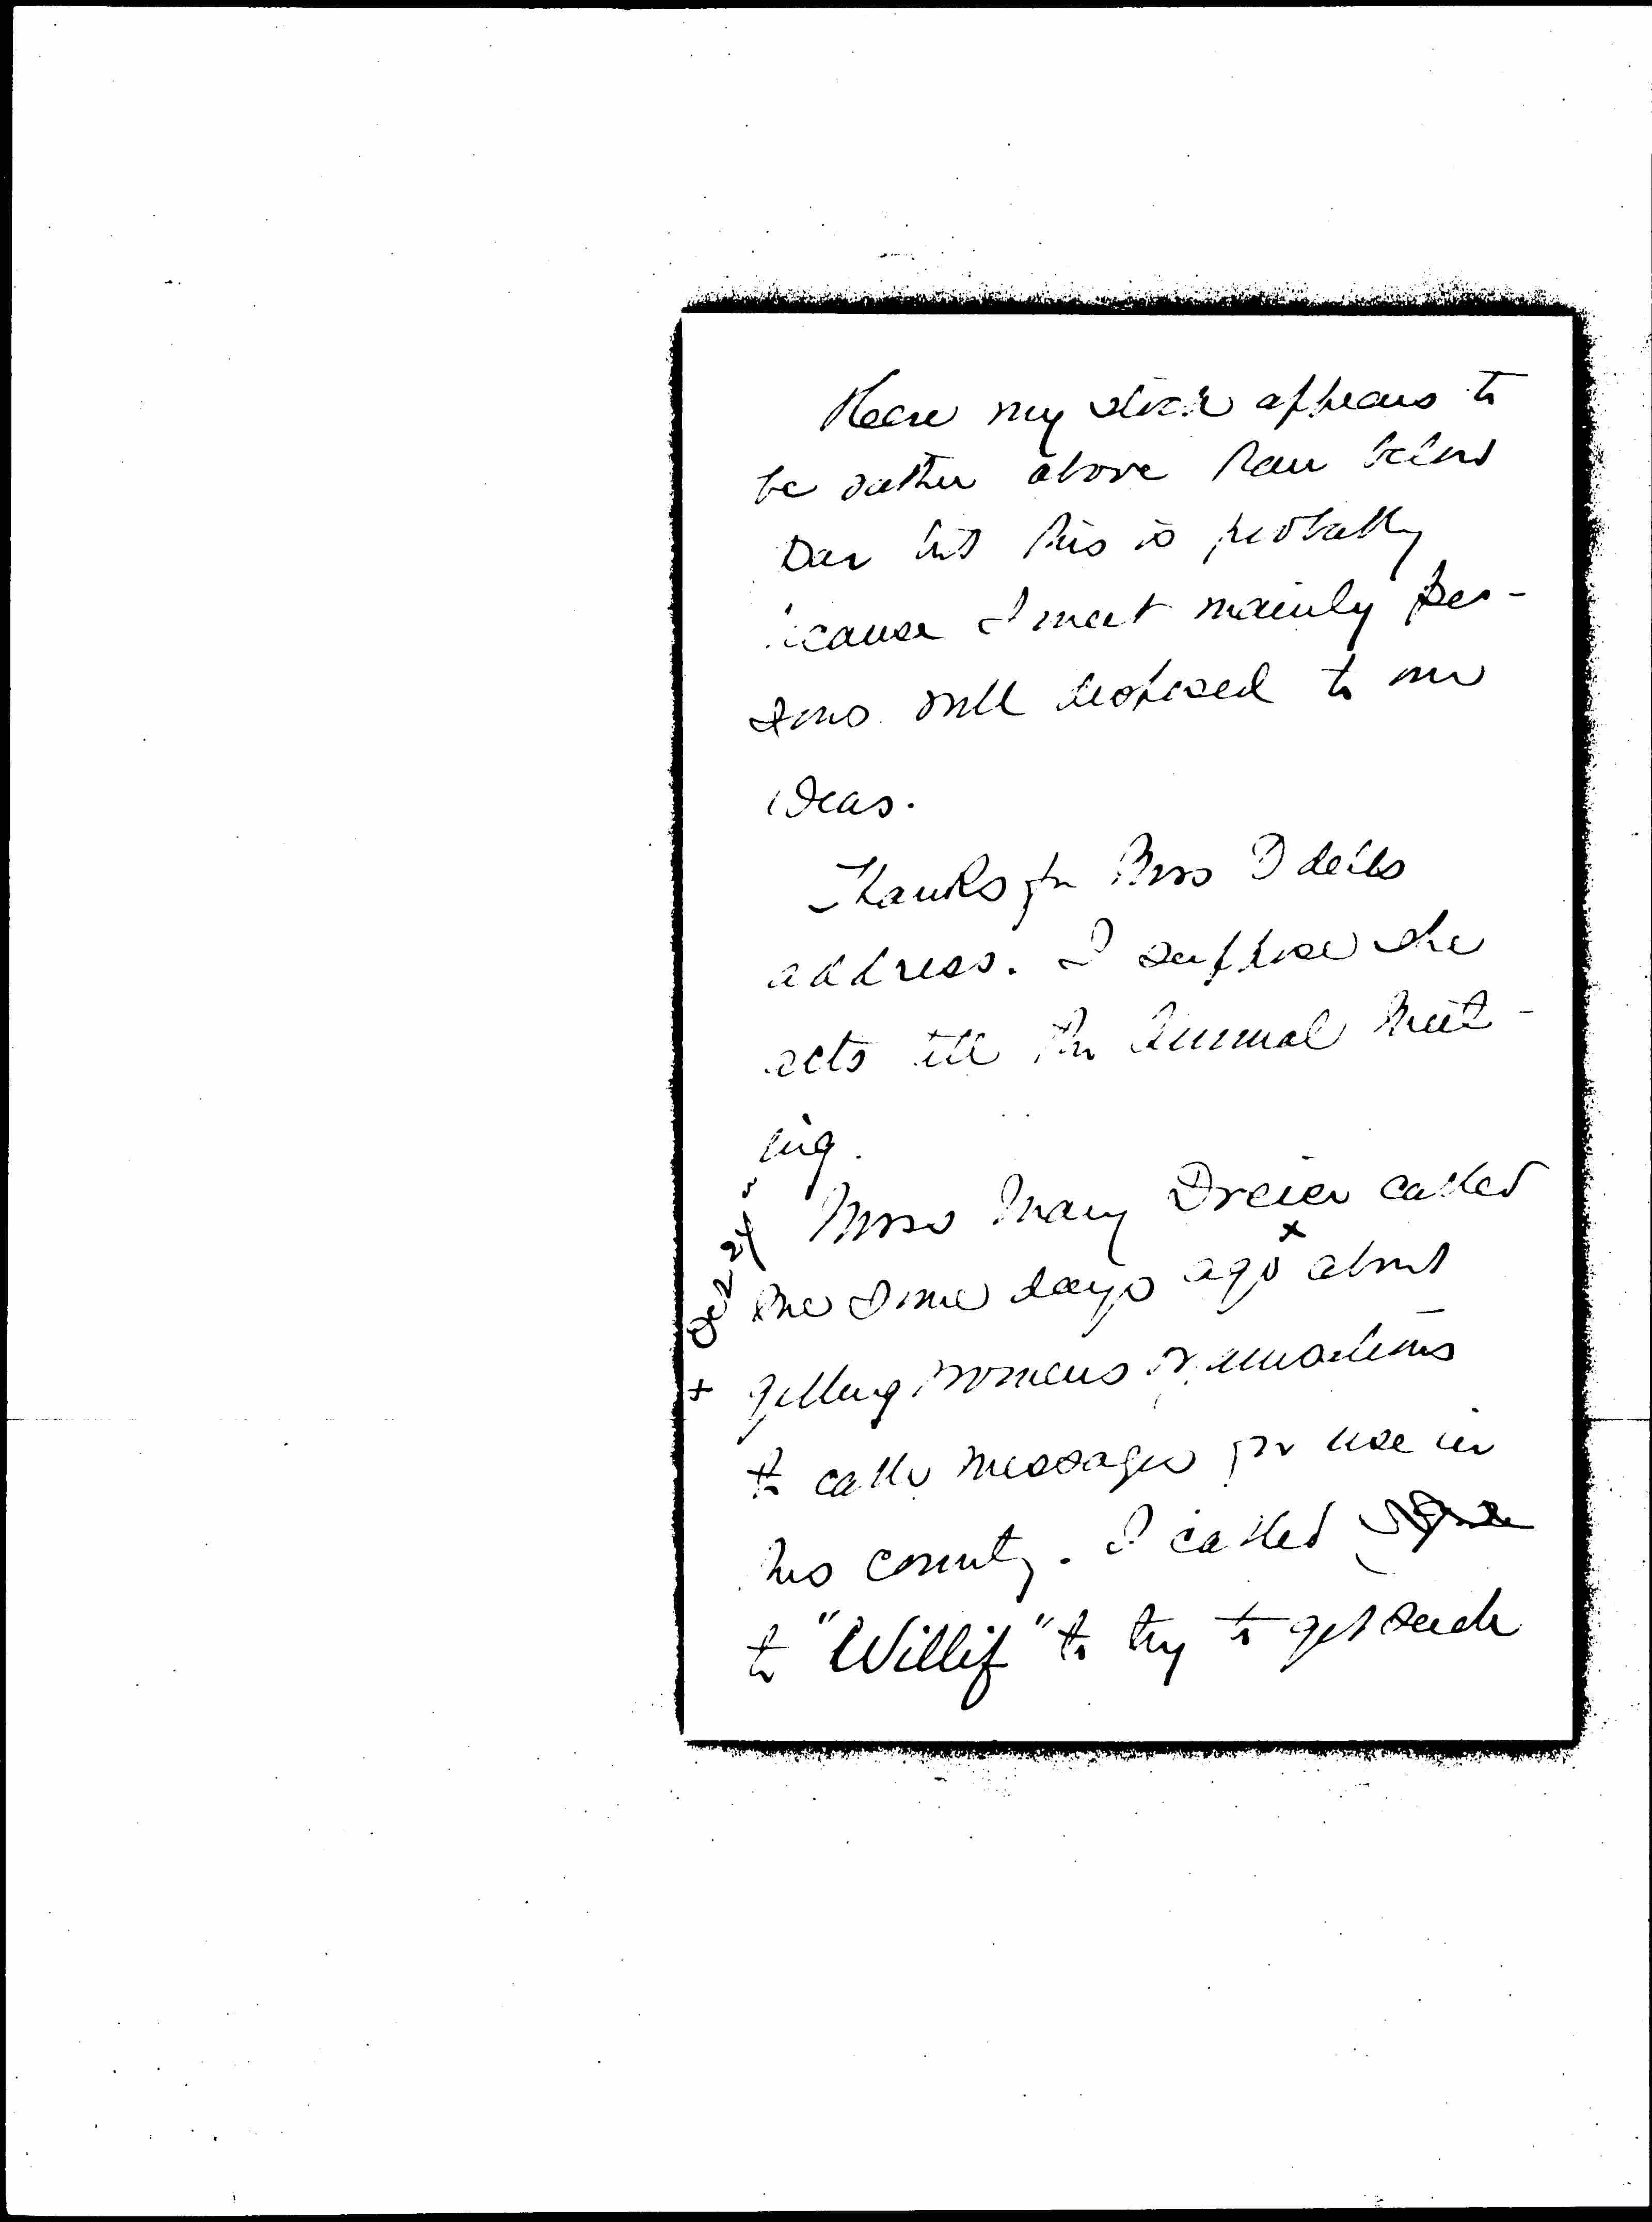 Here my stock appears to
be rather above than below
par but this is probably
because I meet mainly per-
sons well disposed to our
ideas.
Thanks for Miss Odells
address. I suppose she
acts till the Annual Meet-
ing.
Miss Mary Dreier called
me some days ago x about
+ Oct 24
getting womens organizations
to cable messages for use in
this country. I cabled
to "Willif" to try to get such